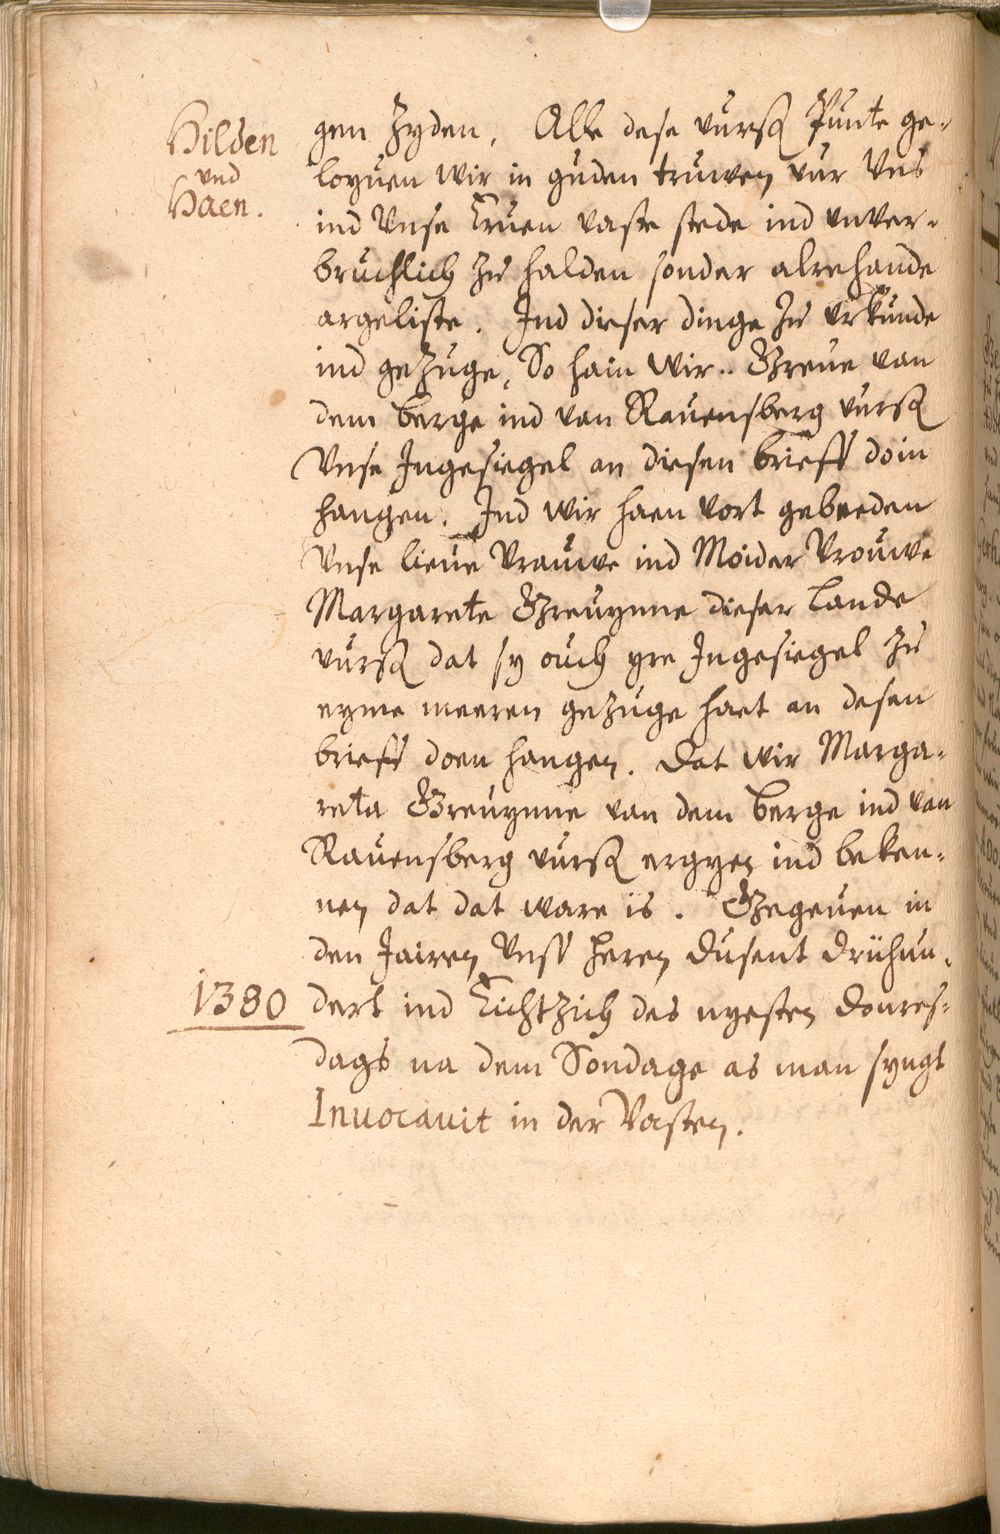 Hilden
und
Haen.
gen Zyden. Alle dese vurß Punte ge-
loyuen wir in guden truwen vur Vns
ind Vnse Eruen vaste stede ind vnver-
bruchlich zu halden sonder alrehande
argeliste. Ind dieser dinge zu Urkunde
ind gezuge, So hain wir.. Greue van
dem berge ind van Rauensberg vurß
Vnse Ingesiegel an diesen brieff doin
hangen. Ind wir haen vort gebeeden
Vnse lieue Vrauwe ind Moider Vrouwe
Margarete Greuynne dieser Lande
vurß dat sy ouch yre Ingesiegel zu
eyme meeren gezuge haet an desen
brieff doen hangen. Dat wir Marga-
reta Greuynne van dem berge ind van
Rauensberg vurß ergyen ind beken-
nen dat dat ware is. Gegeuen in
den Jairen Vnß heren Dusent Drühun-
1380
dert ind Eichtzich des nyesten Donres-
dags na dem Sondage as man syngt
Invocavit in der Vasten.